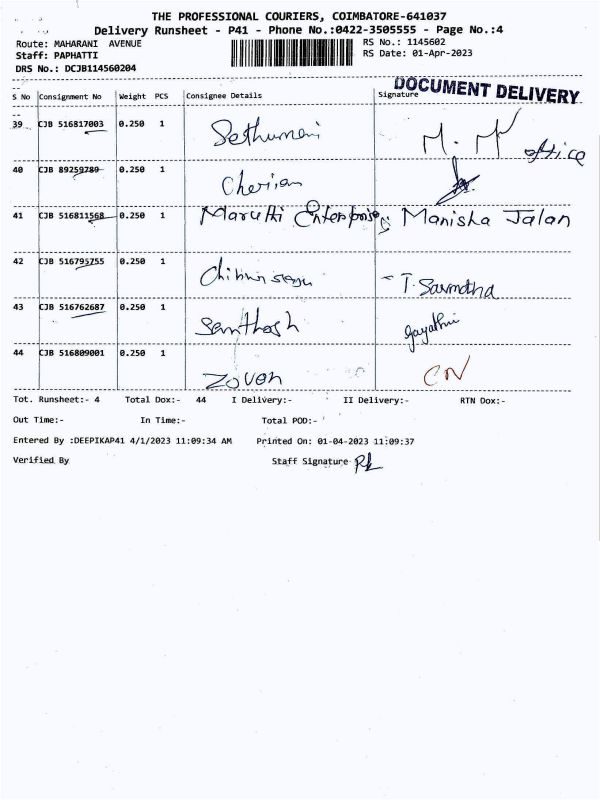 THE PROFESSIONAL COURIERS, COIMBATORE-641037
Delivery Runsheet - P41 - Phone No.:0422-3505555 - Page No.:4
Route: MAHARANI AVENUE RS No.: 1145602
Staff: PAPHATTI RS Date: 01-Apr-2023
DRS No.: DCJB114560204
DOCUMENT DELIVERY
S No Consignment No Weight PCS Consignee Details Signature
39 CJB 516817003 0.250 1 Sethumani office
40 CJB 89259789 0.250 1 Cherian
41 CJB 516811568 0.250 1 Maruthi Enterprises Manisha Jalan
42 CJB 516795755 0.250 1
43 CJB 516762687 0.250 1 Santhosh Gayathri
44 CJB 516809001 0.250 1 Zoven CN
Tot. Runsheet:- 4 Total Dox:- 44 I Delivery:- II Delivery:- RTN Dox:-
Out Time:- In Time:- Total POD:-
Entered By :DEEPIKAP41 4/1/2023 11:09:34 AM Printed On: 01-04-2023 11:09:37
Verified By Staff Signature